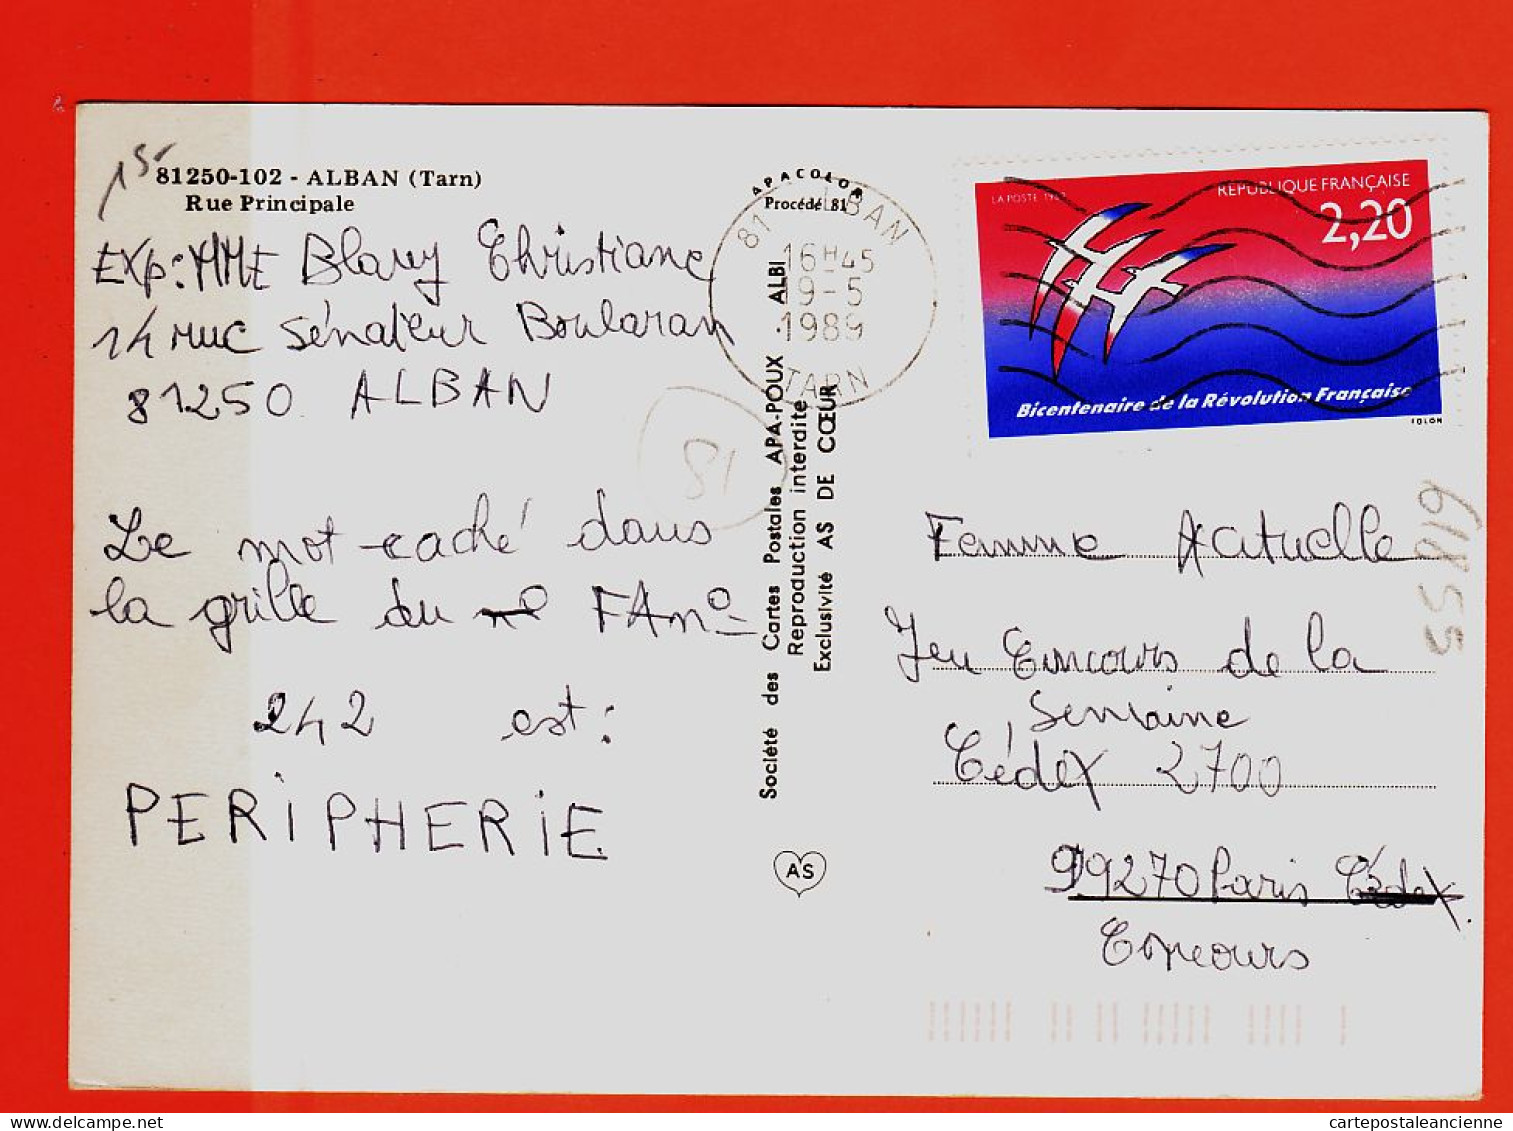 15-
81250-102 - ALBAN (Tarn)
Rue Principale
EXp: MME Blavy Christiane
14 rue Sénateur Boularan
81250 ALBAN
Le mot caché dans
la grille du FA nº
242 est:
PERiPHERiE
81
APACOLOR
Procédé 81
Société des Cartes Postales APA-POUX . ALBI
Reproduction interdite
Exclusivité AS DE CŒUR
AS
81 ALBAN
16H45
19-5
1989
TARN
LA POSTE 1989
RÉPUBLIQUE FRANÇAISE
2,20
Bicentenaire de la Révolution Française
FOLON
Femme Actuelle
Jeu Concours de la
Semaine
Cédex 2700
99270 Paris Cédex
Concours
55819
cartepostaleancienne